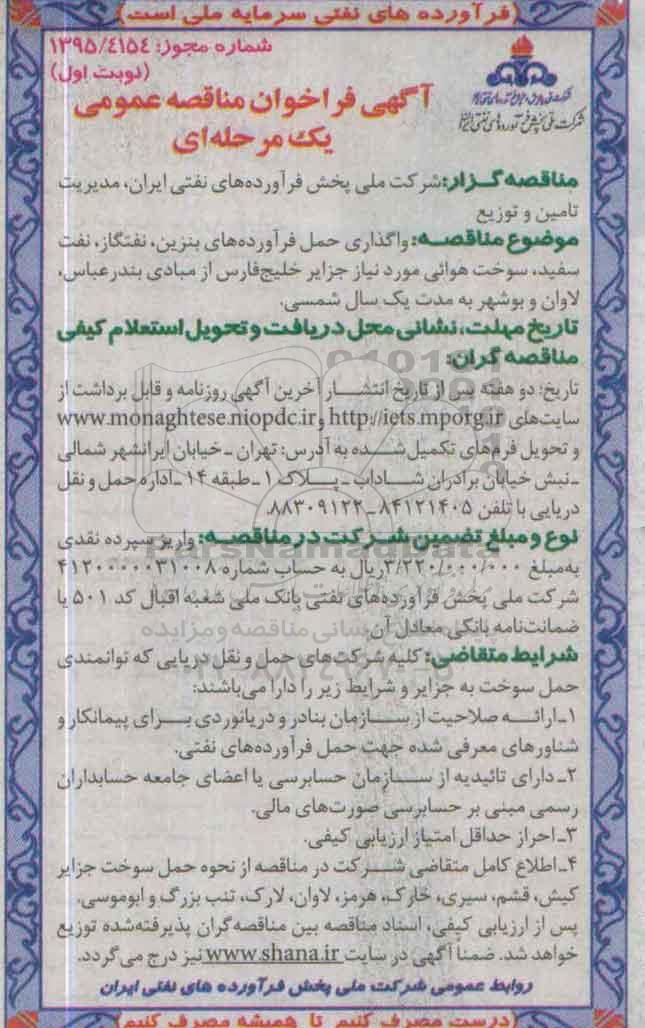 (فرآورده های نفتی سرمایه ملی است)
شماره مجوز: ۱۳۹۵/٤۱٥٤
(نوبت اول)
شرکت ملی پخش فرآورده‌های نفتی ایران
آگهی فراخوان مناقصه عمومی
یک مرحله‌ای
مناقصه گزار: شرکت ملی پخش فرآورده‌های نفتی ایران، مدیریت
تامین و توزیع
موضوع مناقصه: واگذاری حمل فرآورده‌های بنزین، نفتگاز، نفت
سفید، سوخت هوائی مورد نیاز جزایر خلیج‌فارس از مبادی بندرعباس،
لاوان و بوشهر به مدت یک سال شمسی.
تاریخ مهلت، نشانی محل دریافت و تحویل استعلام کیفی
مناقصه گران:
تاریخ: دو هفته پس از تاریخ انتشار آخرین آگهی روزنامه و قابل برداشت از
سایت‌های http://iets.mporg.ir و www.monaghtese.niopdc.ir
و تحویل فرم‌های تکمیل شده به آدرس: تهران ـ خیابان ایرانشهر شمالی
ـ نبش خیابان برادران شاداب ـ پلاک ۱ ـ طبقه ۱۴ ـ اداره حمل و نقل
دریایی با تلفن ۸۴۱۲۱۴۰۵ ـ ۸۸۳۰۹۱۲۲.
نوع و مبلغ تضمین شرکت در مناقصه: واریز سپرده نقدی
به‌مبلغ ۳/۲۲۰/۰۰۰/۰۰۰ ریال به حساب شماره ۴۱۲۰۰۰۰۰۳۱۰۰۸
شرکت ملی پخش فرآورده‌های نفتی بانک ملی شعبه اقبال کد ۵۰۱ یا
ضمانت‌نامه بانکی معادل آن.
شرایط متقاضی: کلیه شرکت‌های حمل و نقل دریایی که توانمندی
حمل سوخت به جزایر و شرایط زیر را دارا می‌باشند:
۱ـ ارائه صلاحیت از سازمان بنادر و دریانوردی برای پیمانکار و
شناورهای معرفی شده جهت حمل فرآورده‌های نفتی.
۲ـ دارای تائیدیه از سازمان حسابرسی یا اعضای جامعه حسابداران
رسمی مبنی بر حسابرسی صورت‌های مالی.
۳ـ احراز حداقل امتیاز ارزیابی کیفی.
۴ـ اطلاع کامل متقاضی شرکت در مناقصه از نحوه حمل سوخت جزایر
کیش، قشم، سیری، خارک، هرمز، لاوان، لارک، تنب بزرگ و ابوموسی.
پس از ارزیابی کیفی، اسناد مناقصه بین مناقصه‌گران پذیرفته‌شده توزیع
خواهد شد. ضمنا آگهی در سایت www.shana.ir نیز درج می‌گردد.
روابط عمومی شرکت ملی پخش فرآورده های نفتی ایران
(درست مصرف کنیم تا همیشه مصرف کنیم)
ParsNamadData